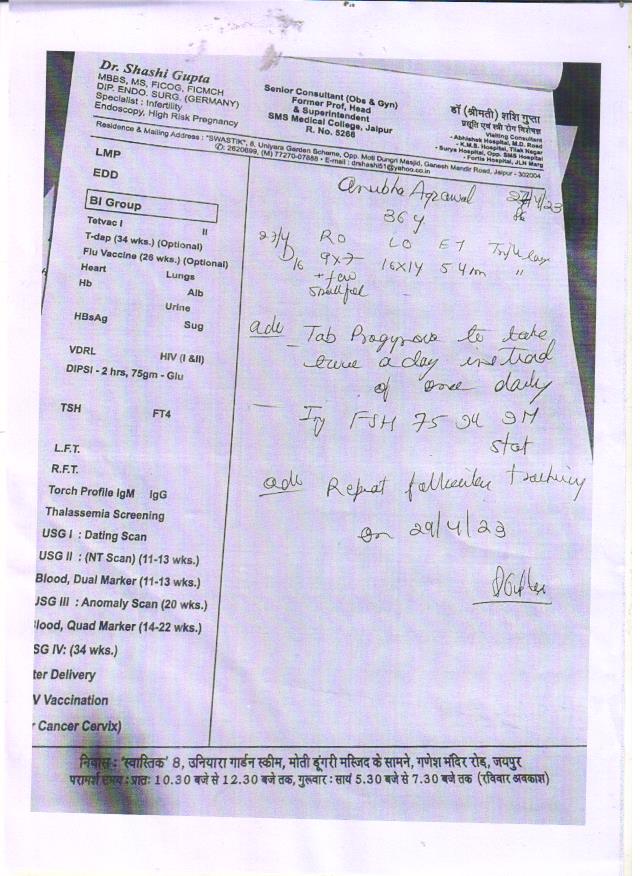 Dr. Shashi Gupta
MBBS, MS, FICOG, FICMCH
DIP. ENDO. SURG. (GERMANY)
Specialist : Infertility
Endoscopy, High Risk Pregnancy
Senior Consultant (Obs & Gyn)
Former Prof, Head
& Superintendent
SMS Medical College, Jaipur
R. No. 5268
डॉ (श्रीमती) शशि गुप्ता
प्रसूति एवं स्त्री रोग विशेषज्ञ
Visiting Consultant
- Abhishek Hospital, M.D. Road
- K.M.S. Hospital, Tilak Nagar
- Surya Hospital, Opp. SMS Hospital
- Fortis Hospital, JLN Marg
Residence & Mailing Address : "SWASTIK", 8, Uniyara Garden Scheme, Opp. Moti Dungri Masjid, Ganesh Mandir Road, Jaipur - 302004
✆: 2620699, (M) 77270-07888 - E-mail : drshashi51@yahoo.co.in
LMP
EDD
Bl Group
Tetvac I II
T-dap (34 wks.) (Optional)
Flu Vaccine (26 wks.) (Optional)
Heart Lungs
Hb Alb
Urine
HBsAg Sug
VDRL HIV (I &II)
DIPSI - 2 hrs, 75gm - Glu
TSH FT4
L.F.T.
R.F.T.
Torch Profile IgM IgG
Thalassemia Screening
USG I : Dating Scan
USG II : (NT Scan) (11-13 wks.)
Blood, Dual Marker (11-13 wks.)
USG III : Anomaly Scan (20 wks.)
lood, Quad Marker (14-22 wks.)
SG IV: (34 wks.)
ter Delivery
V Vaccination
r Cancer Cervix)
Anubha Agrawal 27/4/23
36 y
27/4 RO LO ET
D16 9x7 16x14 5.4mm "
+ few
small fol
adv Tab Progynova to take
twice a day instead
of once daily
- Inj FSH 75 IU IM
stat
adv Repeat follicular tracking
on 29/4/23
SGupta
निवास : 'स्वास्तिक' 8, उनियारा गार्डन स्कीम, मोती डूंगरी मस्जिद के सामने, गणेश मंदिर रोड़, जयपुर
परामर्श समय : प्रातः 10.30 बजे से 12.30 बजे तक, गुरूवार : सायं 5.30 बजे से 7.30 बजे तक (रविवार अवकाश)